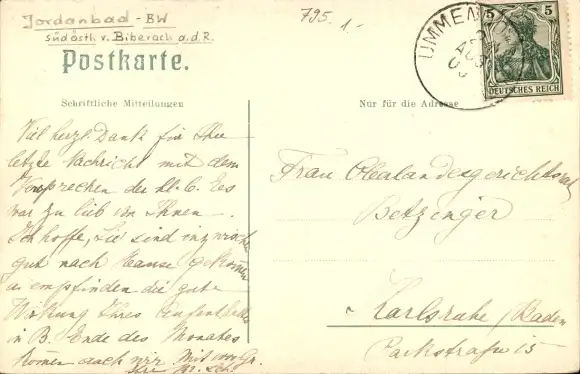 Jordanbad - BW
südöstl. v. Biberach a.d.R.
795.
1.-
UMMEN
5 5
DEUTSCHES REICH
Postkarte.
Schriftliche Mitteilungen
Nur für die Adresse
Viel herzl. Dank für Ihre
letzte Nachricht mit dem
Versprechen der Es
war zu lieb von Ihnen.
Ich hoffe, Sie sind inzwischen
gut nach Hause gekommen
u. empfinden die gute
Wirkung Ihres Aufenthalts
in B. Ende des Monates
kommen auch wir. Mit von Gr.
Ihre M. Sch.
Frau Oberlandesgerichtsrat
Betzinger
Karlsruhe / Baden
Parkstraße 15